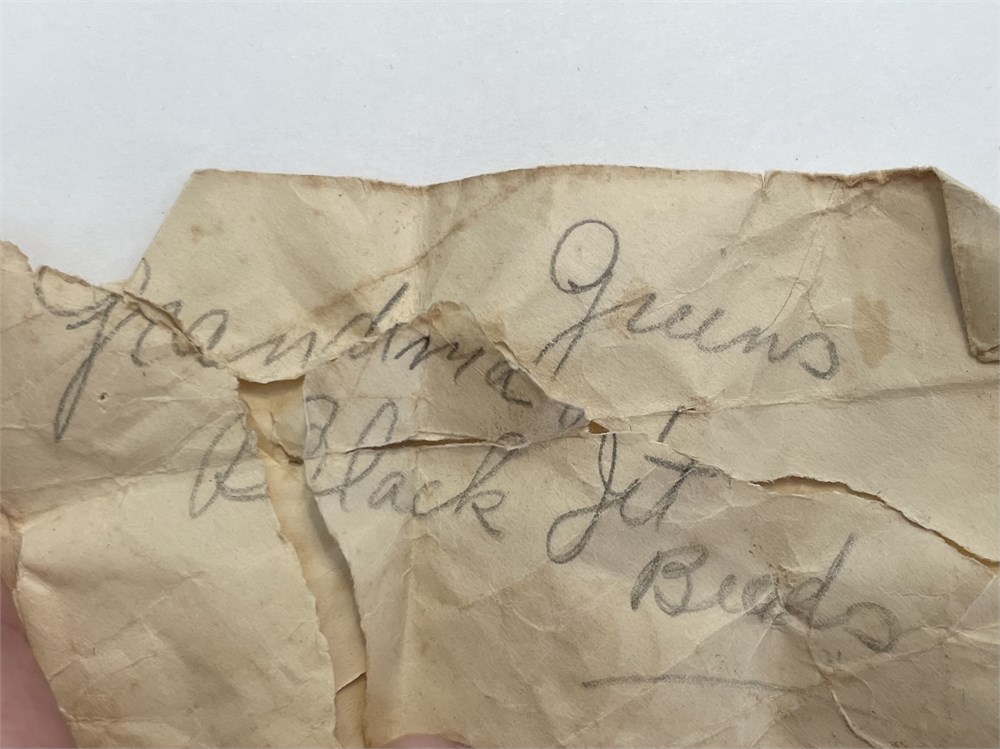 Grandma Greens
Black Jet
Beads